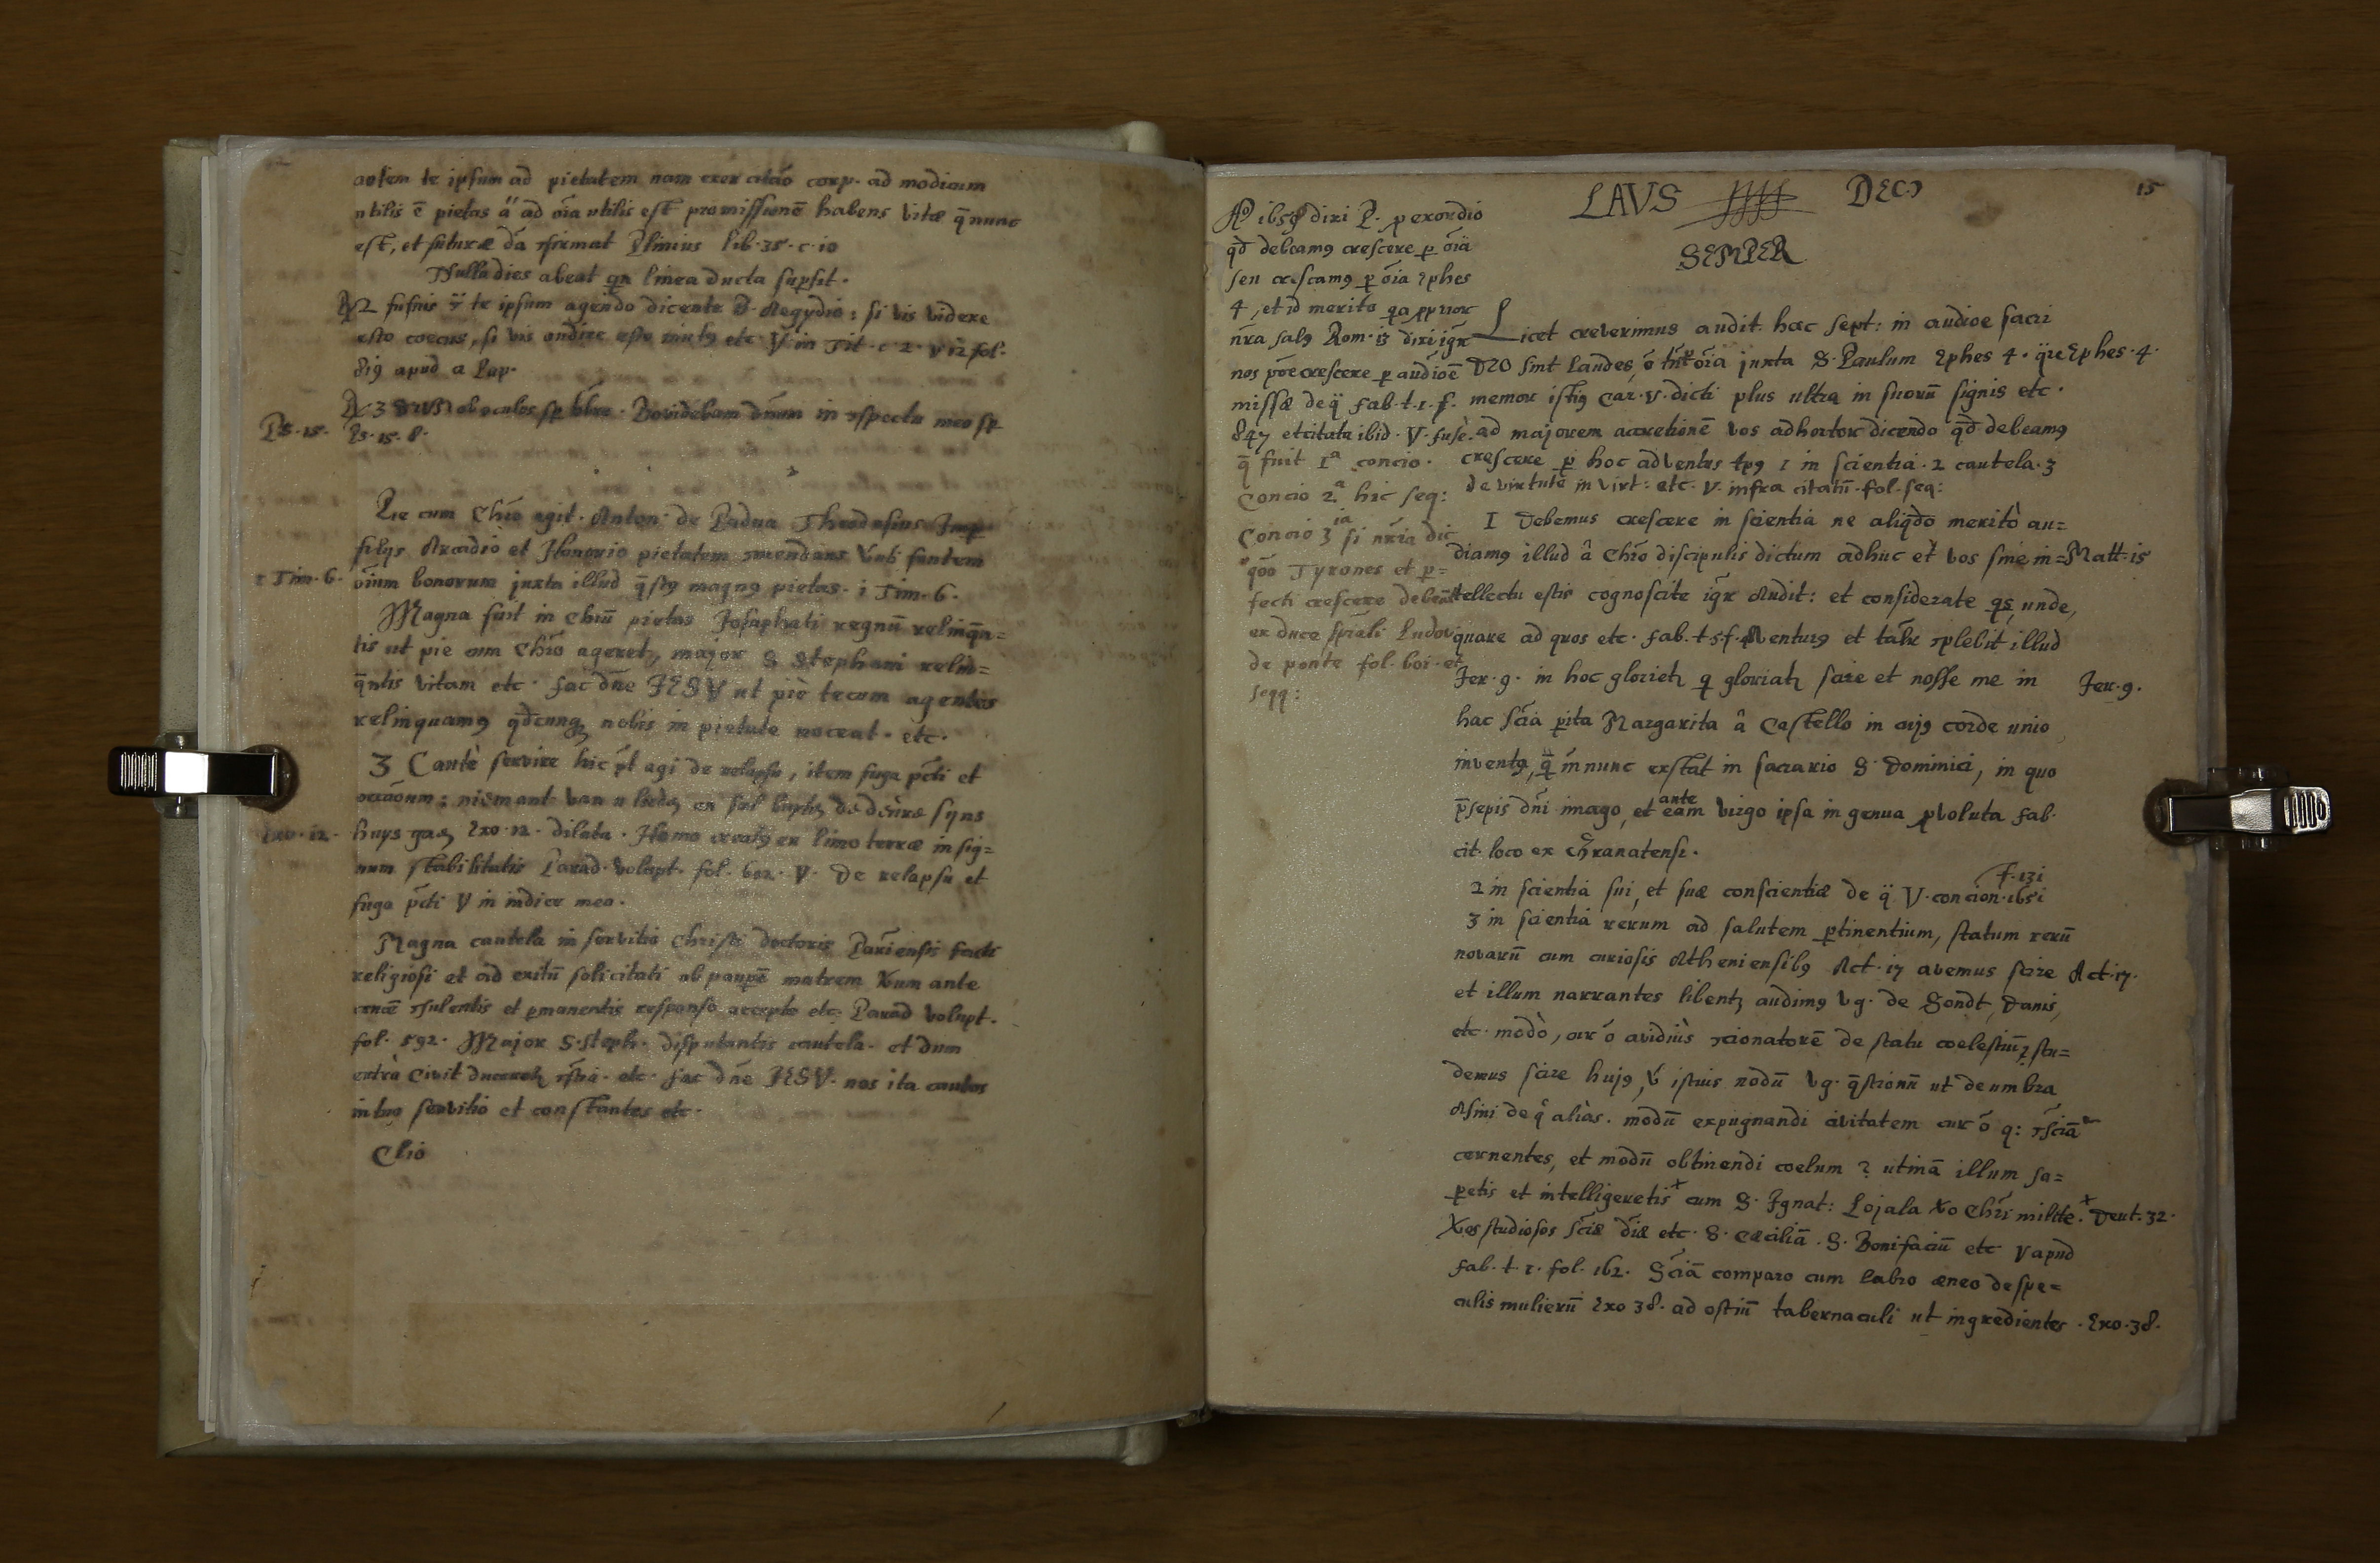 autem te ipsum ad pietatem nam exercitāo corp. ad modicum
utilis ē pietas a͞u ad ōīa utilis est promissionē habens vitæ q̄ nunc
est, et futuræ Plinius lib. 35. c. 10
Nulla dies abeat linea ducta supsit.
te ipsum agendo dicente B. Aegydio: si vis videre
esto coecus, si vis audire esto etc. V. in Tit. c. 2. v 12 fol.
apud a Lap.
3 ob oculos sp Providebam dn̄um in ɔspectu meo sp
Ps. 15. Ps. 15. 8.
Pie cum Chr̄o agit. Anton. de Padua Theodosius Imp
filijs Arcadio et Honorio pietatem ɔmendans fontem
1 Tim. 6. oīum bonorum juxta illud q̄stꝰ magnꝰ pietas. 1 Tim. 6.
Magna fuit in Chr̄ū pietas Josaphati regnū relinq̄n=
tis ut pie cum Chr̄o ageret, major S Stephani relin=
q̄ntis vitam etc. fac dn̄e JESV ut piè tecum agentes
relinquamꝰ qd̄cunqꝫ nobis in pietate noceat. etc.
3 Cautè servire hic pt̄ agi de relapsu, item fuga pc̄ti et
occāonum: niemant van u lieden en sal de deure syns
Exo. 12. huys gaen Exo. 12. dilata. Homo creatꝰ ex limo terræ in sig=
num stabilitatis Parad. volupt. fol. 602. V. De relapsu et
fuga pc̄ti V in indice meo.
Magna cautela in servitio Christi doctoris Pariensis facti
religiosi et ad exitū solicitati ob paupē matrem Xum ante
ɔsulentis et ꝑmanentis responso accepto etc. Parad volupt.
fol. 592. Major S. Steph. disputantis cautela. et dum
extra Civit duceretꝫ etc. fac dn̄e JESV. nos ita cautos
in tuo servitio et constantes etc.
Clio
15
LAVS DEO
SEMPER
Aº 1650 dixi P. exordio
qd̄ debeamꝰ crescere ꝑ ōīa
seu crescamꝰ ꝑ ōīa Ephes
4, et id merito qa
nr̄a salꝰ Rom. 13 dixi igr̄
nos crescere ꝑ audiōē
missæ de q̈ Fab. t. 1. f.
847 et citata ibid. V. fusè.
q̄ fuit 1ᵃ concio.
Concio 2ᵃ hic seq:
Concio 3ⁱᵃ si nr̄ia dic
qōō Tyrones et ꝑ=
fecti crescere debeāt
ex duce spīali Ludov
de ponte fol. 601. et
seqq:
Licet creverimus audit. hac sept: in audiōe sacri
DEO sint laudes, ō tn̄ ōīa juxta S. Paulum Ephes 4. q̈re Ephes. 4.
memor istiꝰ Car. V. dicti plus ultra in suorū signis etc.
ad majorem accretionē vos adhortor dicendo qd̄ debeamꝰ
crescere ꝑ hoc adventus tpꝰ 1 in scientia. 2 cautela. 3
de virtute in virt: etc. V. infra citatū. fol. seq:
1 Debemus crescere in scientia ne aliqdo meritò au=
diamꝰ illud â Chr̄o discipulis dictum adhuc et vos sine in= Matt. 15
tellectu estis cognoscite igr̄ Audit: et considerate qs, unde,
quare ad quos etc. Fab. t 5. f. Adventurꝰ et talr̄ ɔplebit illud
Jer. 9. in hoc glorietꝫ q̄ gloriatꝫ scire et nosse me in Jer. 9.
hac scīa ꝑita Margarita â Castello in cujꝰ corde unio
inventꝰ, q̄ nunc exstat in sacrario S. Dominici, in quo
p̄sepis dn̄i imago, et ante eam virgo ipsa in genua ꝓvoluta Fab.
cit. loco ex
2 in scientia sui, et suæ conscientiæ de q̈ V. concion. 1651 f. 131
3 in scientia rerum ad salutem ꝑtinentium, statum rerū
novarū cum curiosis Atheniensibꝰ Act. 17 avemus scire Act. 17.
et illum narrantes libentꝫ audimꝰ vg. de Sondt, Danis,
etc. modò, cur ō avidiùs ɔcionatorē de statu coelestiū? stu=
demus scire hujꝰ, v́ istius nodū vg. q̄stionū ut de umbra
Asini de q̂ aliàs. modū expugnandi civitatem cur ō q: ɔsciā
cernentes, et modū obtinendi coelum? utinā illum sa=
ꝑetis et intelligeretis ᕁ cum S. Ignat: Lojala Xo Chr̄i milite. ᕁ Deut. 32.
Xos studiosos scīæ dīæ etc. S. Cæciliā. S. Bonifaciū etc. V apud
Fab. t. 1. fol. 162. Scīā comparo cum labro æneo de spe=
culis mulierū Exo 38. ad ostiū tabernaculi ut ingredientes. Exo. 38.